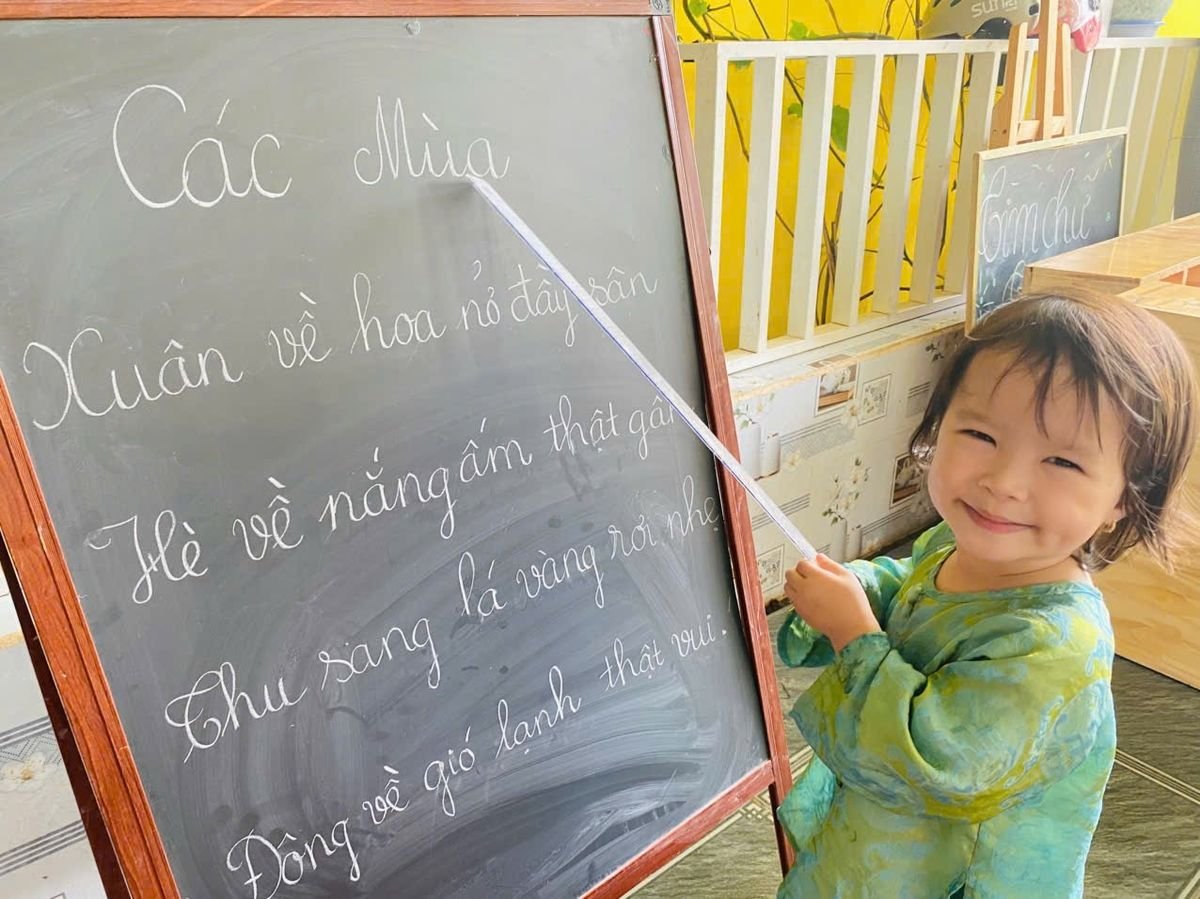 Các Mùa
Xuân về hoa nở đầy sân
Hè về nắng ấm thật gần
Thu sang lá vàng rơi nhẹ
Đông về gió lạnh thật vui.
Tìm chữ